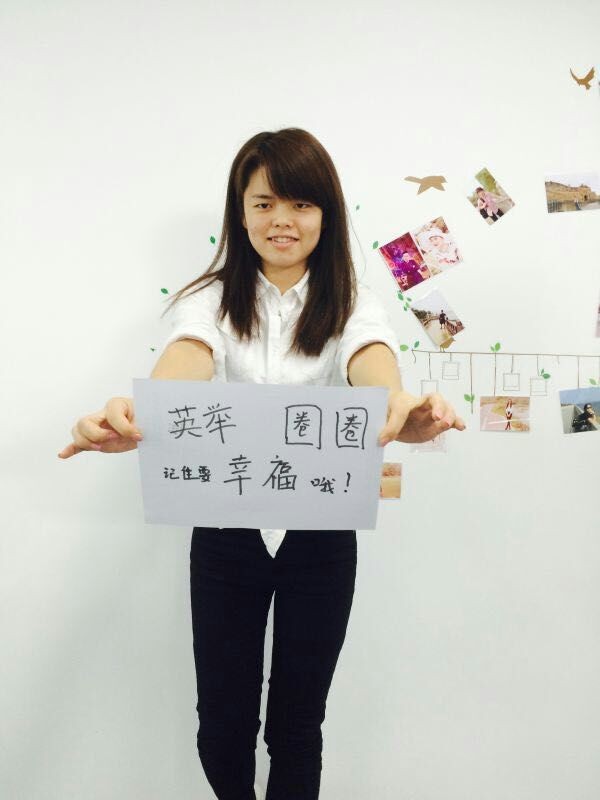 英举 圈圈
记住要幸福哦!